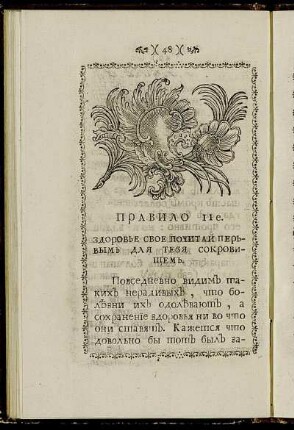 )( 48 )(
ПРАВИЛО 11е.
ЗДОРОВЬЕ СВОЕ ПОЧИТАЙ ПЕРЬ-
ВЫМЪ ДЛЯ ТЕБЯ СОКРОВИ-
ЩЕМЪ.
Повседневно видимъ та-
кихъ нерадивыхъ, что бо-
лѣзни ихъ одолѣваютъ, а
сохраненіе здоровья ни во что
они ставятъ. Кажется что
довольно бы тотъ былъ за-